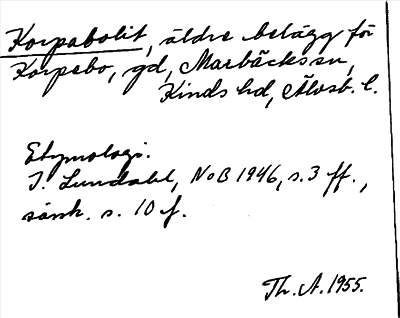 Korpabolit, äldre belägg för
Korpebo, gd, Marbäcks sn,
Kinds hd, Älvsb. l.
Etymologi.
I. Lundahl, NoB 1946, s. 3 ff.,
särsk. s. 10 f.
Th. A. 1955.